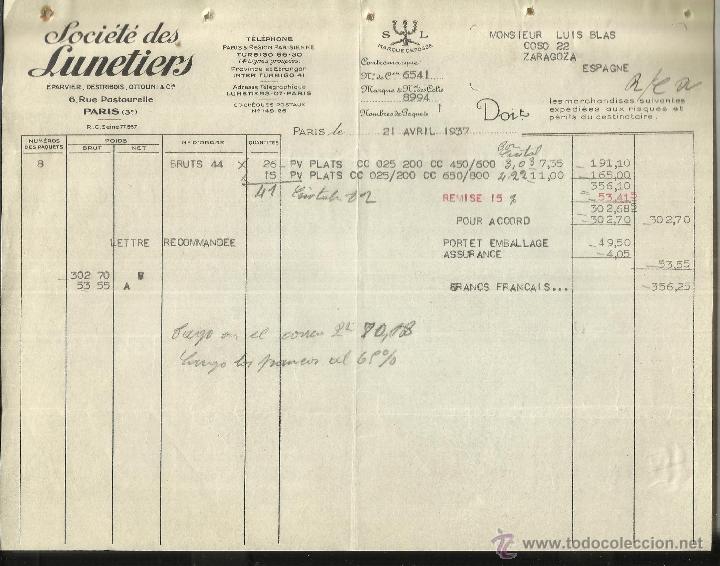 Société des
Lunetiers
EPARVIER, DESTRIBOIS, OTTOUN & Cie
6, Rue Pastourelle
PARIS (3e)
R.C. Seine 77557
TÉLÉPHONE
PARIS & RÉGION PARISIENNE
TURBIGO 86-30
(4 lignes groupées)
Province et Etranger
INTER TURBIGO 41
Adresse Télégraphique
LUNETIERS-07-PARIS
CHÈQUES POSTAUX
N° 149-26
S L
MARQUE DÉPOSÉE
Contremarque
N° de Cde 6541
Marque & Nos des Colis
8994
Nombres de Paquets
MONSIEUR LUIS BLAS
COSO 22
ZARAGOZA
ESPAGNE
Doit
les marchandises suivantes
expédiées aux risques et
périls du destinataire.
PARIS le 21 AVRIL 1937
NUMÉROS DES PAQUETS
POIDS
BRUT NET
N° D'ORDRE
QUANTITÉS
8 BRUTS 44 X 26 PV PLATS CC 025/200 CC 450/600 3,03 7,35 191,10
15 PV PLATS CC 025/200 CC 650/800 4,22 11,00 165,00
41 356,10
REMISE 15 % 53,415
302,685
POUR ACCORD 302,70 302,70
LETTRE RECOMMANDÉE PORT ET EMBALLAGE 49,50
ASSURANCE 4,05
53,55
302 70
53 55 A FRANCS FRANCAIS... 356,25
Pago en el correo 70,18
Cargo los francos al 65%
todocoleccion.net